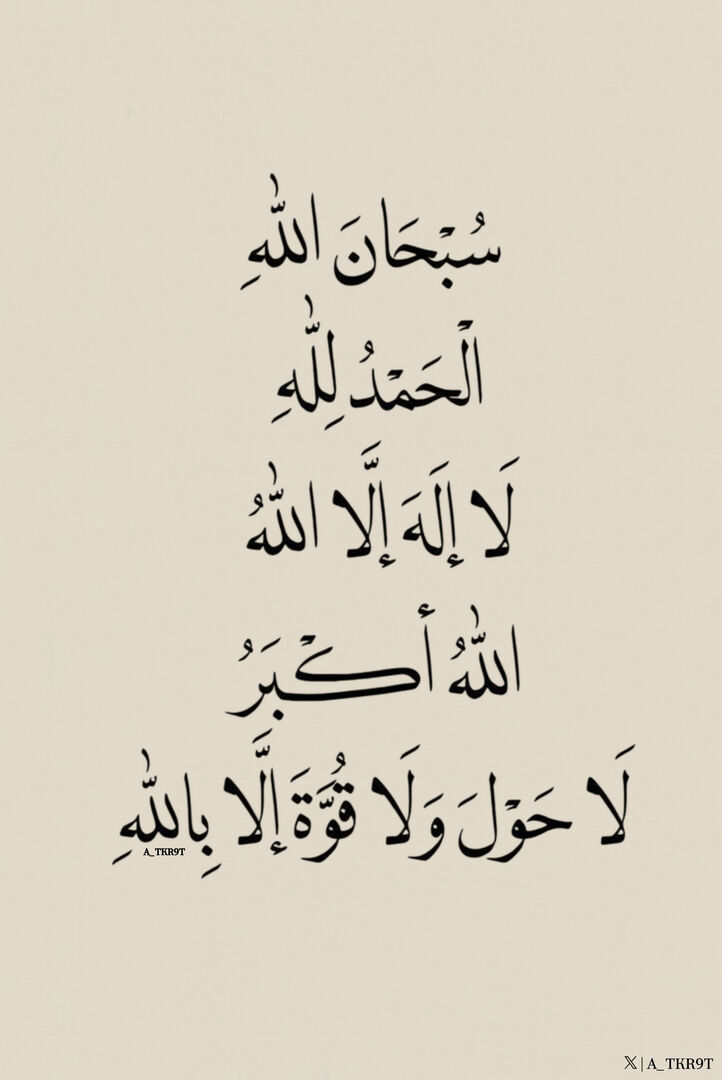 سُبْحَانَ اللّٰهِ
الْحَمْدُ لِلّٰهِ
لَا إِلَهَ إِلَّا اللّٰهُ
اللّٰهُ أَكْبَرُ
لَا حَوْلَ وَلَا قُوَّةَ إِلَّا بِاللّٰهِ
A_TKR9T
𝕏 | A_TKR9T